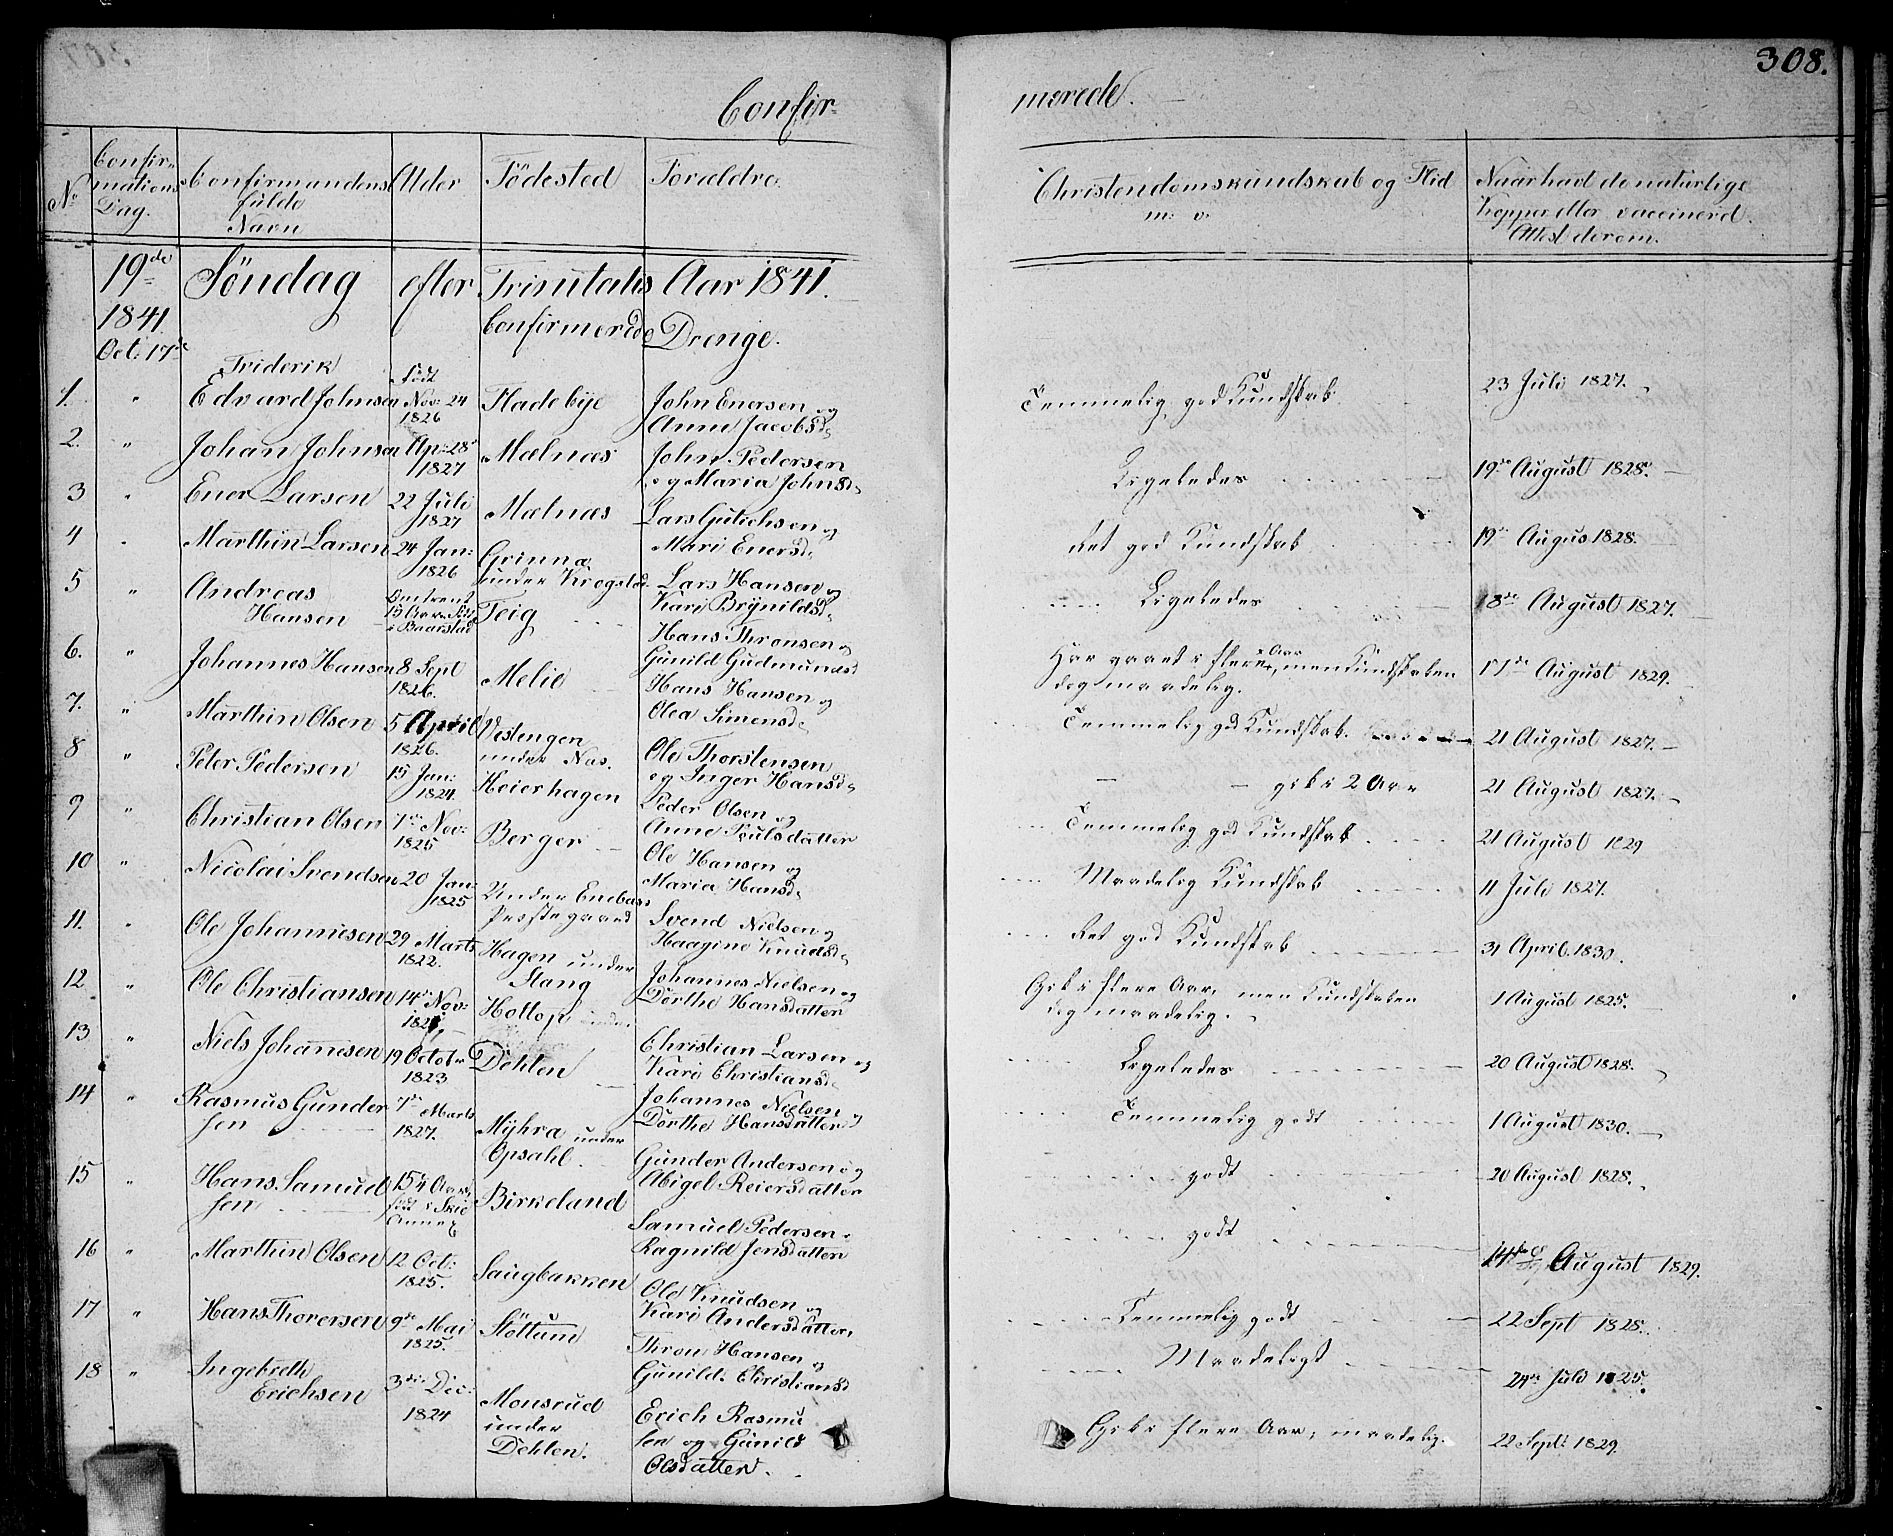 308.
Confir-
merede.
No
Confir-
mations
Dag.
Confirmandens
fulde
Navn
Alder
Födested
Forældre
Christendomskundskab og Flid
m: v:
Naar havt de naturlige
Kopper eller vaccinerd.
Attest derom.
19de Söndag efter Trinitatis Aar 1841.
1841 Confirmerede Drenge.
Oct: 17de
1. " Friderik
Edvard Johnsen
Födt
Nov: 24
1826
Fladebÿe
John Enersen og
Anne Jacobsd:
Temmelig god Kundskab
23 Juli 1827.
2. " Johan Johnsen
Ap: 28
1827
Mælnæs
John Pedersen
og Maria Johnsd:
Ligeledes
19de August 1828.
3 " Ener Larsen
22 Juli
1827
Mælnæs
Lars Gulichsen og
Mari Enersd:
Ret god Kundskab
19de Augus 1828.
4 " Marthin Larsen
24 Jan:
1826
Grinna
under Krogstad
Lars Hansen og
Kari Brÿnildsd:
Ligeledes
18de August 1827.
5 " Andreas
Hansen
Omtrent
19 Aar Född
i Baarstad
Teig
Hans Thronsen og
Gunild Gudmunds
Har gaaet i flere Aar, men Kundskaben
dog maadelig.
17de August 1829.
6. " Johannes Hansen
8 Sept
1826.
Melie
Hans Hansen og
Olea Simensd:
Temmelig god Kundskab.
21 August 1827.
7. " Marthin Olsen
5 April
1826.
Vestengen
under Næs.
Ole Thorstensen
og Inger Hansd:
— — gik i 2 Aar
21 August 1827.
8 " Peter Pedersen
15 Jan:
1824.
Heierhagen
Peder Olsen og
Anne Poulsdatter
Temmelig god Kundskab
21 August 1829
9 " Christian Olsen
7de Nov:
1825
Berger
Ole Hansen og
Maria Hansd:
Maadelig Kundskab
11 Juli 1827.
10 " Nicolai Svendsen
20 Jan:
1825
Under Enebak
Præstegaard
Svend Nielsen og
Haagine Knudsd:
Ret god Kundskab
31 April. 1830.
11. " Ole Johannesen
29 Marts
1822.
Hagen under
Stang
Johannes Nielsen og
Dörthe Hansdatter
Gik i flere Aar, men Kundskaben
dog maadelig.
1 August 1825.
12 " Ole Christiansen
14de Nov:
Holtop
Christian Larsen og
Kari Christiansd:
Ligeledes
20 August 1828.
13 " Niels Johannesen
19 Octobr
1823
Dehlen
Johannes Nielsen og
Dörthe Hansdatter
Temmelig godt
1 August 1830.
14 " Rasmus Gunder
sen
7de Marts
1827.
Mÿhra under
Opsahl.
Gunder Andersen og
Abigel Reiersdatter
godt
20 August 1828.
15 " Hans Samuel
sen
15¼ Aar,
född i Skie
Annex
Birkeland
Samuel Pedersen
Ragnild Jensdatter
godt
14de August 1829.
16 " Marthin Olsen
12 Oct:
1825.
Saugbakken
Ole Knudsen og
Kari Andersdatter,
Temmelig godt
22 Sept 1828.
17 " Hans Thorersen
9de Mai
1825.
Stöttum
Thron Hansen og
Gunild Christiansd
Maadeligt
24de Juli 1825.
18 " Ingebreth
Erichsen
3die Dec:
1824
Monsrud
under
Dehlen.
Erich Rasmu
sen og Gunild
Olsdatter.
Gik i flere Aar, maadelig.
22 Sept: 1829.